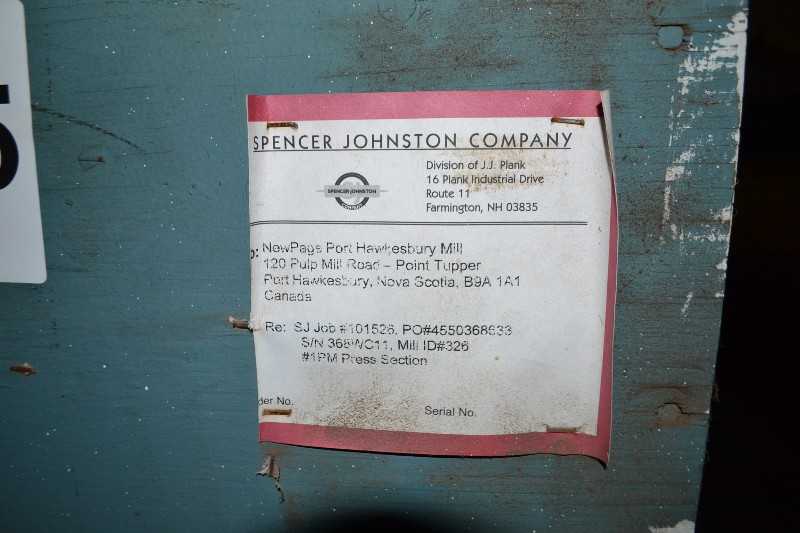 SPENCER JOHNSTON COMPANY
Division of J.J. Plank
16 Plank Industrial Drive
Route 11
Farmington, NH 03835
SPENCER JOHNSTON
COMPANY
o: NewPage Port Hawkesbury Mill
120 Pulp Mill Road – Point Tupper
Port Hawkesbury, Nova Scotia, B9A 1A1
Canada
Re: SJ Job #101526, PO#4550368633
S/N 368WC11, Mill ID#326
#1PM Press Section
der No.
Serial No.